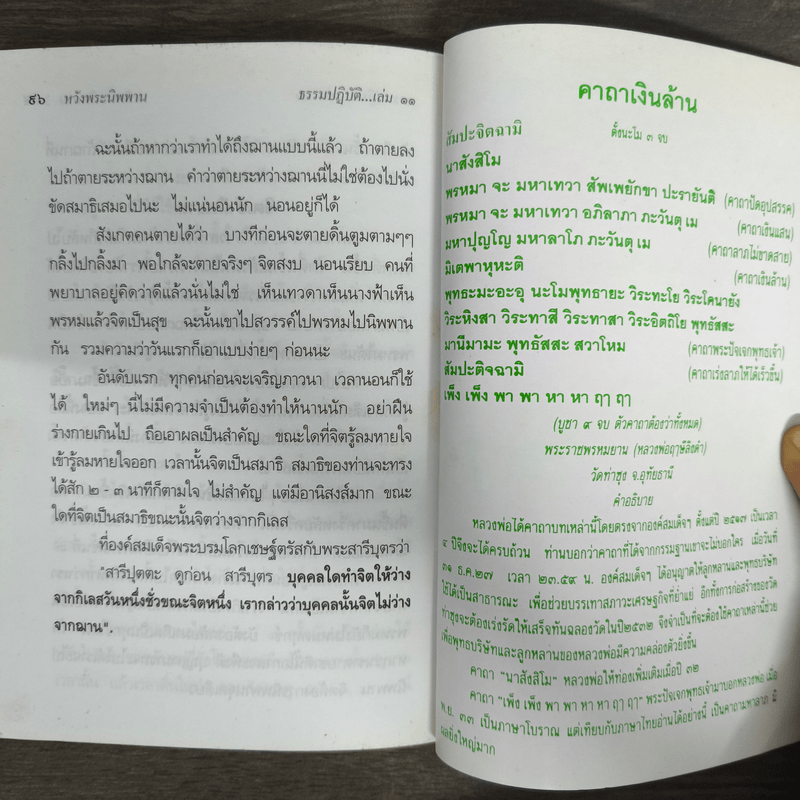 ๙๖ หวังพระนิพพาน
ธรรมปฏิบัติ...เล่ม ๑๑
ฉะนั้นถ้าหากว่าเราทำได้ถึงฌานแบบนี้แล้ว ถ้าตายลง
ไปถ้าตายระหว่างฌาน คำว่าตายระหว่างฌานนี่ไม่ใช่ต้องไปนั่ง
ขัดสมาธิเสมอไปนะ ไม่แน่นอนนัก นอนอยู่ก็ได้
สังเกตคนตายได้ว่า บางทีก่อนจะตายดิ้นตูมตามๆๆ
กลิ้งไปกลิ้งมา พอใกล้จะตายจริงๆ จิตสงบ นอนเรียบ คนที่
พยาบาลอยู่คิดว่าดีแล้วนั่นไม่ใช่ เห็นเทวดาเห็นนางฟ้าเห็น
พรหมแล้วจิตเป็นสุข ฉะนั้นเขาไปสวรรค์ไปพรหมไปนิพพาน
กัน รวมความว่าวันแรกก็เอาแบบง่ายๆ ก่อนนะ
อันดับแรก ทุกคนก่อนจะเจริญภาวนา เวลานอนก็ใช้
ได้ ใหม่ๆ นี่ไม่มีความจำเป็นต้องทำให้นานนัก อย่าฝืน
ร่างกายเกินไป ถือเอาผลเป็นสำคัญ ขณะใดที่จิตรู้ลมหายใจ
เข้ารู้ลมหายใจออก เวลานั้นจิตเป็นสมาธิ สมาธิของท่านจะทรง
ได้สัก ๒ - ๓ นาทีก็ตามใจ ไม่สำคัญ แต่มีอานิสงส์มาก ขณะ
ใดที่จิตเป็นสมาธิขณะนั้นจิตว่างจากกิเลส
ที่องค์สมเด็จพระบรมโลกเชษฐ์ตรัสกับพระสารีบุตรว่า
"สารีปุตตะ ดูก่อน สารีบุตร บุคคลใดทำจิตให้ว่าง
จากกิเลสวันหนึ่งชั่วขณะจิตหนึ่ง เรากล่าวว่าบุคคลนั้นจิตไม่ว่าง
จากฌาน".
คาถาเงินล้าน
ตั้งนะโม ๓ จบ
สัมปะจิตฉามิ
นาสังสิโม
พรหมา จะ มหาเทวา สัพเพยักขา ปะรายันติ (คาถาปัดอุปสรรค)
พรหมา จะ มหาเทวา อภิลาภา ภะวันตุ เม (คาถาเงินแสน)
มหาปุญโญ มหาลาโภ ภะวันตุ เม (คาถาลาภไม่ขาดสาย)
มิเตพาหุหะติ (คาถาเงินล้าน)
พุทธะมะอะอุ นะโมพุทธายะ วิระทะโย วิระโคนายัง
วิระหิงสา วิระทาสี วิระทาสา วิระอิตถิโย พุทธัสสะ
มานีมามะ พุทธัสสะ สวาโหม (คาถาพระปัจเจกพุทธเจ้า)
สัมปะติจฉามิ (คาถาเร่งลาภให้ได้เร็วขึ้น)
เพ็ง เพ็ง พา พา หา หา ฤๅ ฤๅ
(บูชา ๙ จบ ตัวคาถาต้องว่าทั้งหมด)
พระราชพรหมยาน (หลวงพ่อฤๅษีลิงดำ)
วัดท่าซุง จ.อุทัยธานี
คำอธิบาย
หลวงพ่อได้คาถาบทเหล่านี้โดยตรงจากองค์สมเด็จฯ ตั้งแต่ปี ๒๕๑๗ เป็นเวลา
๔ ปีจึงจะได้ครบถ้วน ท่านบอกว่าคาถาที่ได้จากกรรมฐานเขาจะไม่บอกใคร เมื่อวันที่
๓๑ ธ.ค.๒๗ เวลา ๒๓.๕๙ น. องค์สมเด็จฯ ได้อนุญาตให้ลูกหลานและพุทธบริษัท
ใช้ได้เป็นสาธารณะ เพื่อช่วยบรรเทาสภาวะเศรษฐกิจที่ย่ำแย่ อีกทั้งการก่อสร้างของวัด
ท่าซุงจะต้องเร่งรัดให้เสร็จทันฉลองวัดในปี๒๕๓๒ จึงจำเป็นที่จะต้องใช้คาถาเหล่านี้ช่วย
เพื่อพุทธบริษัทและลูกหลานของหลวงพ่อมีความคล่องตัวยิ่งขึ้น
คาถา "นาสังสิโม" หลวงพ่อให้ท่องเพิ่มเติมเมื่อปี ๓๒
คาถา "เพ็ง เพ็ง พา พา หา หา ฤๅ ฤๅ" พระปัจเจกพุทธเจ้ามาบอกหลวงพ่อ เมื่อ
พ.ย. ๓๓ เป็นภาษาโบราณ แต่เทียบกับภาษาไทยอ่านได้อย่างนี้ เป็นคาถามหาลาภ มี
ผลยิ่งใหญ่มาก